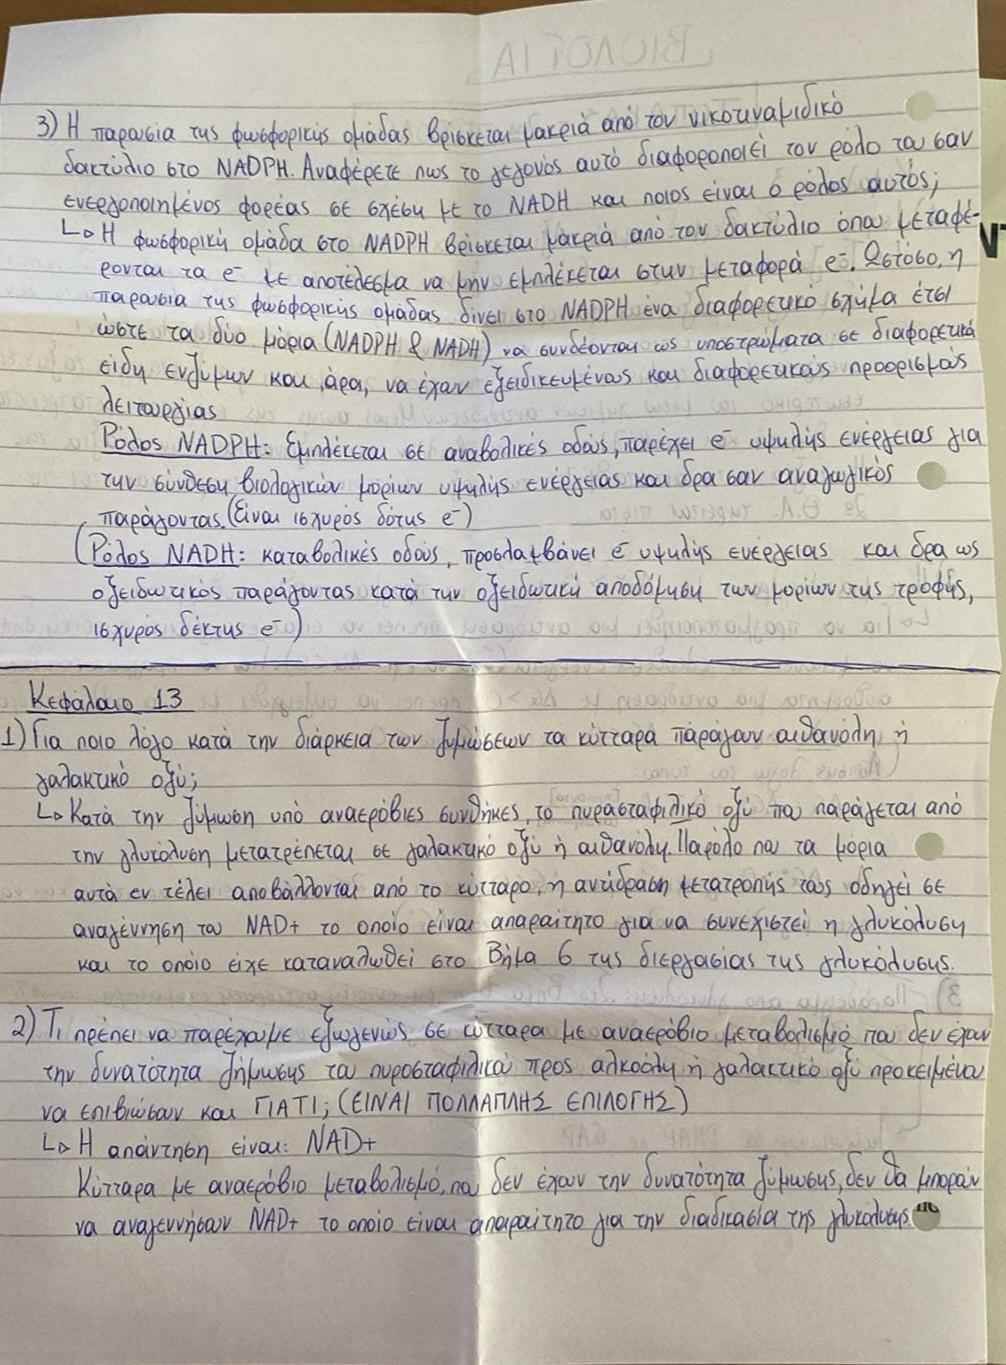 ΒΙΟΛΟΓΙΑ
3) Η παρουσία της φωσφορικής ομάδας βρίσκεται μακριά από τον νικοτιναμιδικό
δακτύλιο στο NADPH. Αναφέρετε πως το γεγονός αυτό διαφοροποιεί τον ρόλο του σαν
ενεργοποιημένος φορέας σε σχέση με το NADH και ποιος είναι ο ρόλος αυτός;
↳ Η φωσφορική ομάδα στο NADPH βρίσκεται μακριά από τον δακτύλιο όπου μεταφέ-
ρονται τα e⁻ με αποτέλεσμα να μην εμπλέκεται στην μεταφορά e⁻. Ωστόσο, η
παρουσία της φωσφορικής ομάδας δίνει στο NADPH ένα διαφορετικό σχήμα έτσι
ώστε τα δύο μόρια (NADPH & NADH) να συνδέονται ως υποστρώματα σε διαφορετικά
είδη ενζύμων και, άρα, να έχουν εξειδικευμένους και διαφορετικούς προορισμούς
λειτουργίας
Ρόλος NADPH: Εμπλέκεται σε αναβολικές οδούς, παρέχει e⁻ υψηλής ενέργειας για
την σύνθεση βιολογικών μορίων υψηλής ενέργειας και δρα σαν αναγωγικός
παράγοντας. (Είναι ισχυρός δότης e⁻)
(Ρόλος NADH: καταβολικές οδούς, προσλαμβάνει e⁻ υψηλής ενέργειας και δρα ως
οξειδωτικός παράγοντας κατά την οξειδωτική αποδόμηση των μορίων της τροφής,
ισχυρός δέκτης e⁻)
Κεφάλαιο 13
1) Για ποιο λόγο κατά την διάρκεια των ζυμώσεων τα κύτταρα παράγουν αιθανόλη ή
γαλακτικό οξύ;
↳ Κατά την ζύμωση υπό αναερόβιες συνθήκες, το πυρασταφιλικό οξύ που παράγεται από
την γλυκόλυση μετατρέπεται σε γαλακτικό οξύ ή αιθανόλη. Παρόλο που τα μόρια
αυτά εν τέλει αποβάλλονται από το κύτταρο, η αντίδραση μετατροπής τους οδηγεί σε
αναγέννηση του NAD+ το οποίο είναι απαραίτητο για να συνεχιστεί η γλυκόλυση
και το οποίο είχε καταναλωθεί στο Βήμα 6 της διεργασίας της γλυκόλυσης.
2) Τι πρέπει να παρέχουμε εξωγενώς σε κύτταρα με αναερόβιο μεταβολισμό που δεν έχουν
την δυνατότητα ζύμωσης του πυροσταφιλικού προς αλκοόλη ή γαλακτικό οξύ προκειμένου
να επιβιώσουν και ΓΙΑΤΙ; (ΕΙΝΑΙ ΠΟΛΛΑΠΛΗΣ ΕΠΙΛΟΓΗΣ)
↳ Η απάντηση είναι: NAD+
Κύτταρα με αναερόβιο μεταβολισμό, που δεν έχουν την δυνατότητα ζύμωσης, δεν θα μπορούν
να αναγεννήσουν NAD+ το οποίο είναι απαραίτητο για την διαδικασία της γλυκόλυσης